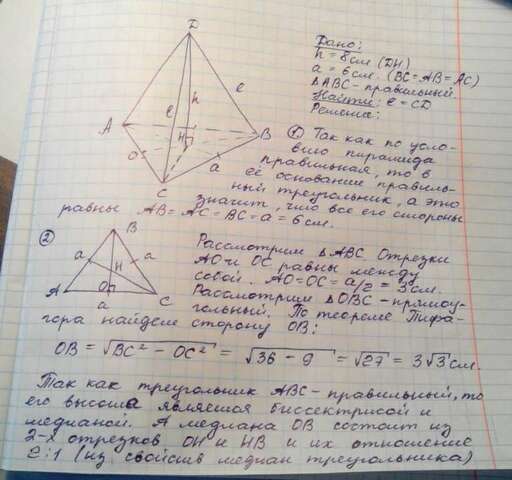 D
A
B
C
O
H
h
e
e
a
Дано:
h = 8см (DH)
a = 6см. (BC=AB=AC)
ΔABC - правильный.
Найти: e = CD
Решение:
① Так как по усло-
вию пирамида
правильная, то в
её основание правиль-
ный треугольник, а это
значит, что все его стороны
равны AB = AC = BC = a = 6 см.
②
B
a
a
H
A
O
C
a
Рассмотрим ΔABC. Отрезки
AO и OC равны между
собой. AO = OC = a/2 = 3 см.
Рассмотрим ΔOBC - прямоу-
гольный. По теореме Пифа-
гора найдем сторону OB:
OB = √BC² - OC² = √36 - 9 = √27 = 3√3 см.
Так как треугольник ABC - правильный, то
его высота является биссектрисой и
медианой. А медиана OB состоит из
2-х отрезков OH и HB и их отношение
2:1 (из свойств медиан треугольника)